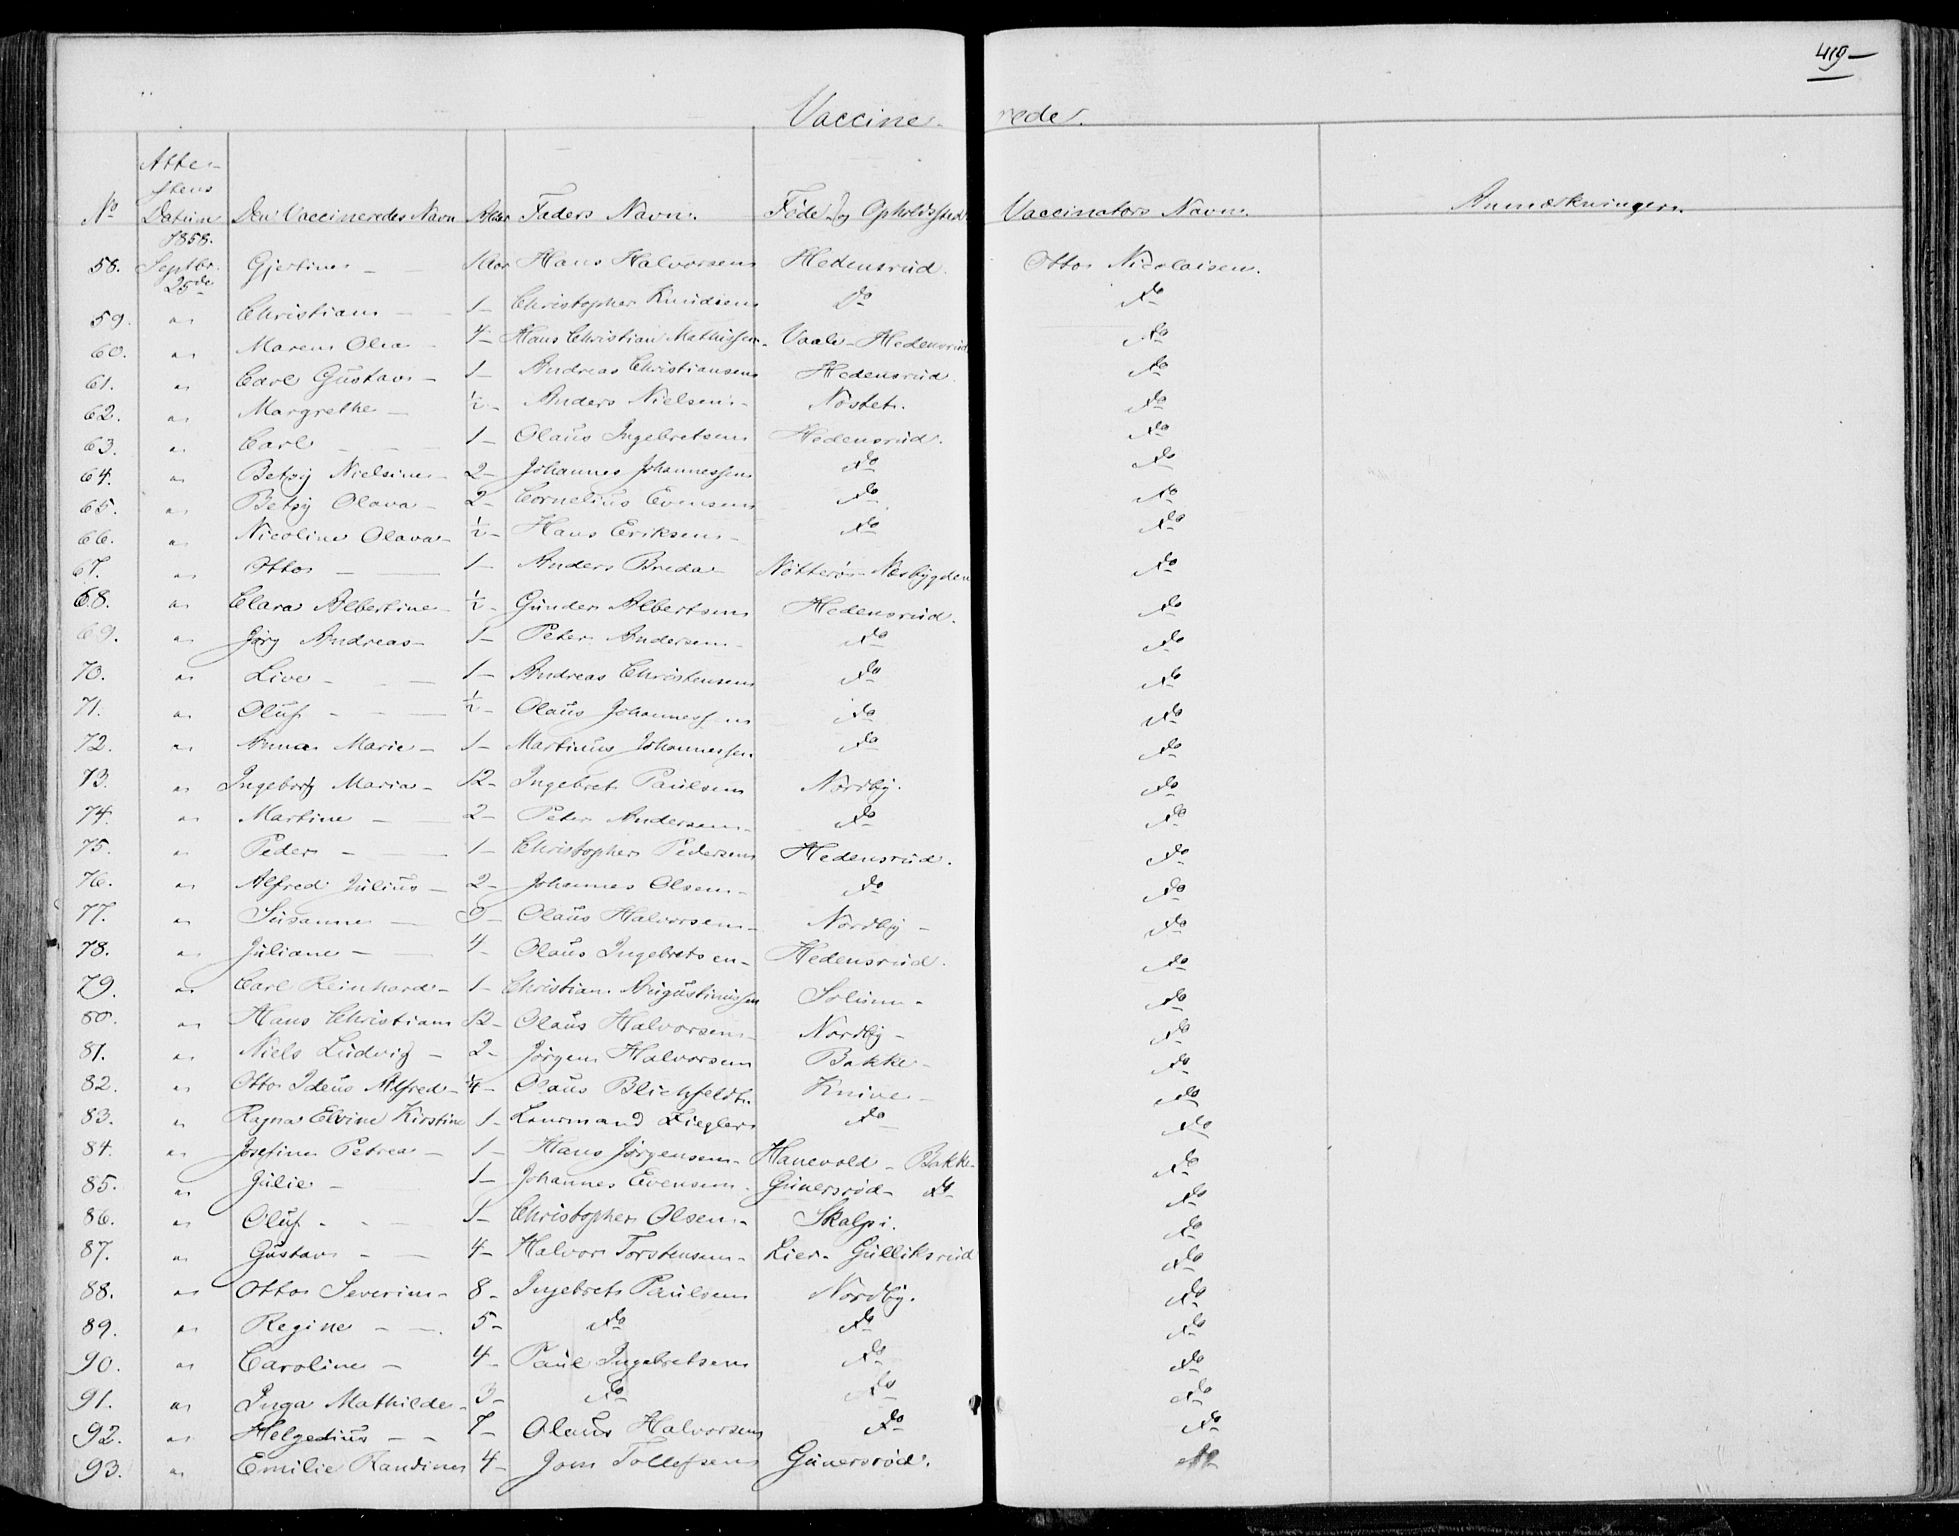 419-
Vaccinerede.
Atte-
stens
No Datum Den Vaccineredes Navn Alder Faders Navn. Føde- og Opholdssted Vaccinators Navn. Anmærkninger.
1858.
58. Septbr. 25de Gjertine 1 Aar Hans Halvorsen Hedensrud. Otto Nicolaisen.
59. " Christian 1 Christopher Knudsen Do Do
60. " Maren Olea 4 Hans Christian Mathissen Vaale-Hedensrud Do
61. " Carl Gustav 1 Andreas Christiansen Hedensrud. Do
62. " Margrethe ½ Anders Nielsen Nøstet. Do
63. " Carl 1 Olaus Ingebretsen Hedensrud. Do
64. " Betsy Nielsine 2 Johannes Johannessen Do Do
65. " Betsy Olava 2 Cornelius Evensen Do Do
66. " Nicoline Olava ½ Hans Eriksen Do Do
67. " Otto 1 Anders Breda Nøtterø- Nesbygden Do
68. " Clara Albertine ½ Gunder Albertsen Hedensrud. Do
69. " Jørg Andreas 1 Peter Andersen Do Do
70. " Live 1 Andreas Christensen Do Do
71. " Oluf ½ Olaus Johannessen Do Do
72. " Anna Marie 1 Martinus Johannessen Do Do
73. " Ingeborg Maria 12 Ingebret Paulsen Nordby. Do
74. " Martine 2 Peter Andersen Do Do
75. " Peder 1 Christopher Pedersen Hedensrud. Do
76. " Alfred Julius 2 Johannes Olsen Do Do
77. " Susanne Olaus Halvorsen Nordby Do
78. " Juliane 4 Olaus Ingebretsen Hedensrud. Do
79. " Carl Reinhard 1 Christian Augustinussen Solum Do
80. " Hans Christian 12 Olaus Halvorsen Nordby Do
81. " Niels Ludvig 2 Jørgen Halvorsen Bakke Do
82. " Otto Ideus Alfred ¼ Olaus Blichfeldt. Knive Do
83. " Ragna Elvine Kirstine 1 Lensmand Ziegler Do Do
84. " Josefine Petrea 1 Hans Jørgensen Hanevold - Bakke Do
85. " Julie 1 Johannes Evensen Gunersrød Do Do
86. " Oluf 1 Christopher Olsen Skalpi. Do
87. " Gustav 4 Halvor Torstensen Lier- Gulliksrud Do
88. " Otto Severin 8 Ingebret Paulsen Nordby. Do
89. " Regine 5 Do Do Do
90. " Caroline 4 Paul Ingebretsen Do Do
91. " Inga Mathilde 3 Do Do Do
92. " Helgesius 7 Olaus Halvorsen Do Do
93. " Emilie Randine 4 Jon Tollefsen Gunersrød. Do